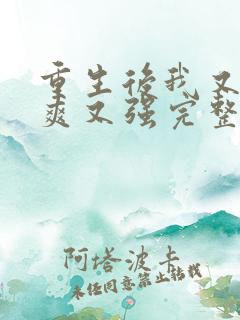 重生後我又
爽又强完整
阿塔波卡
未经同意禁止转载